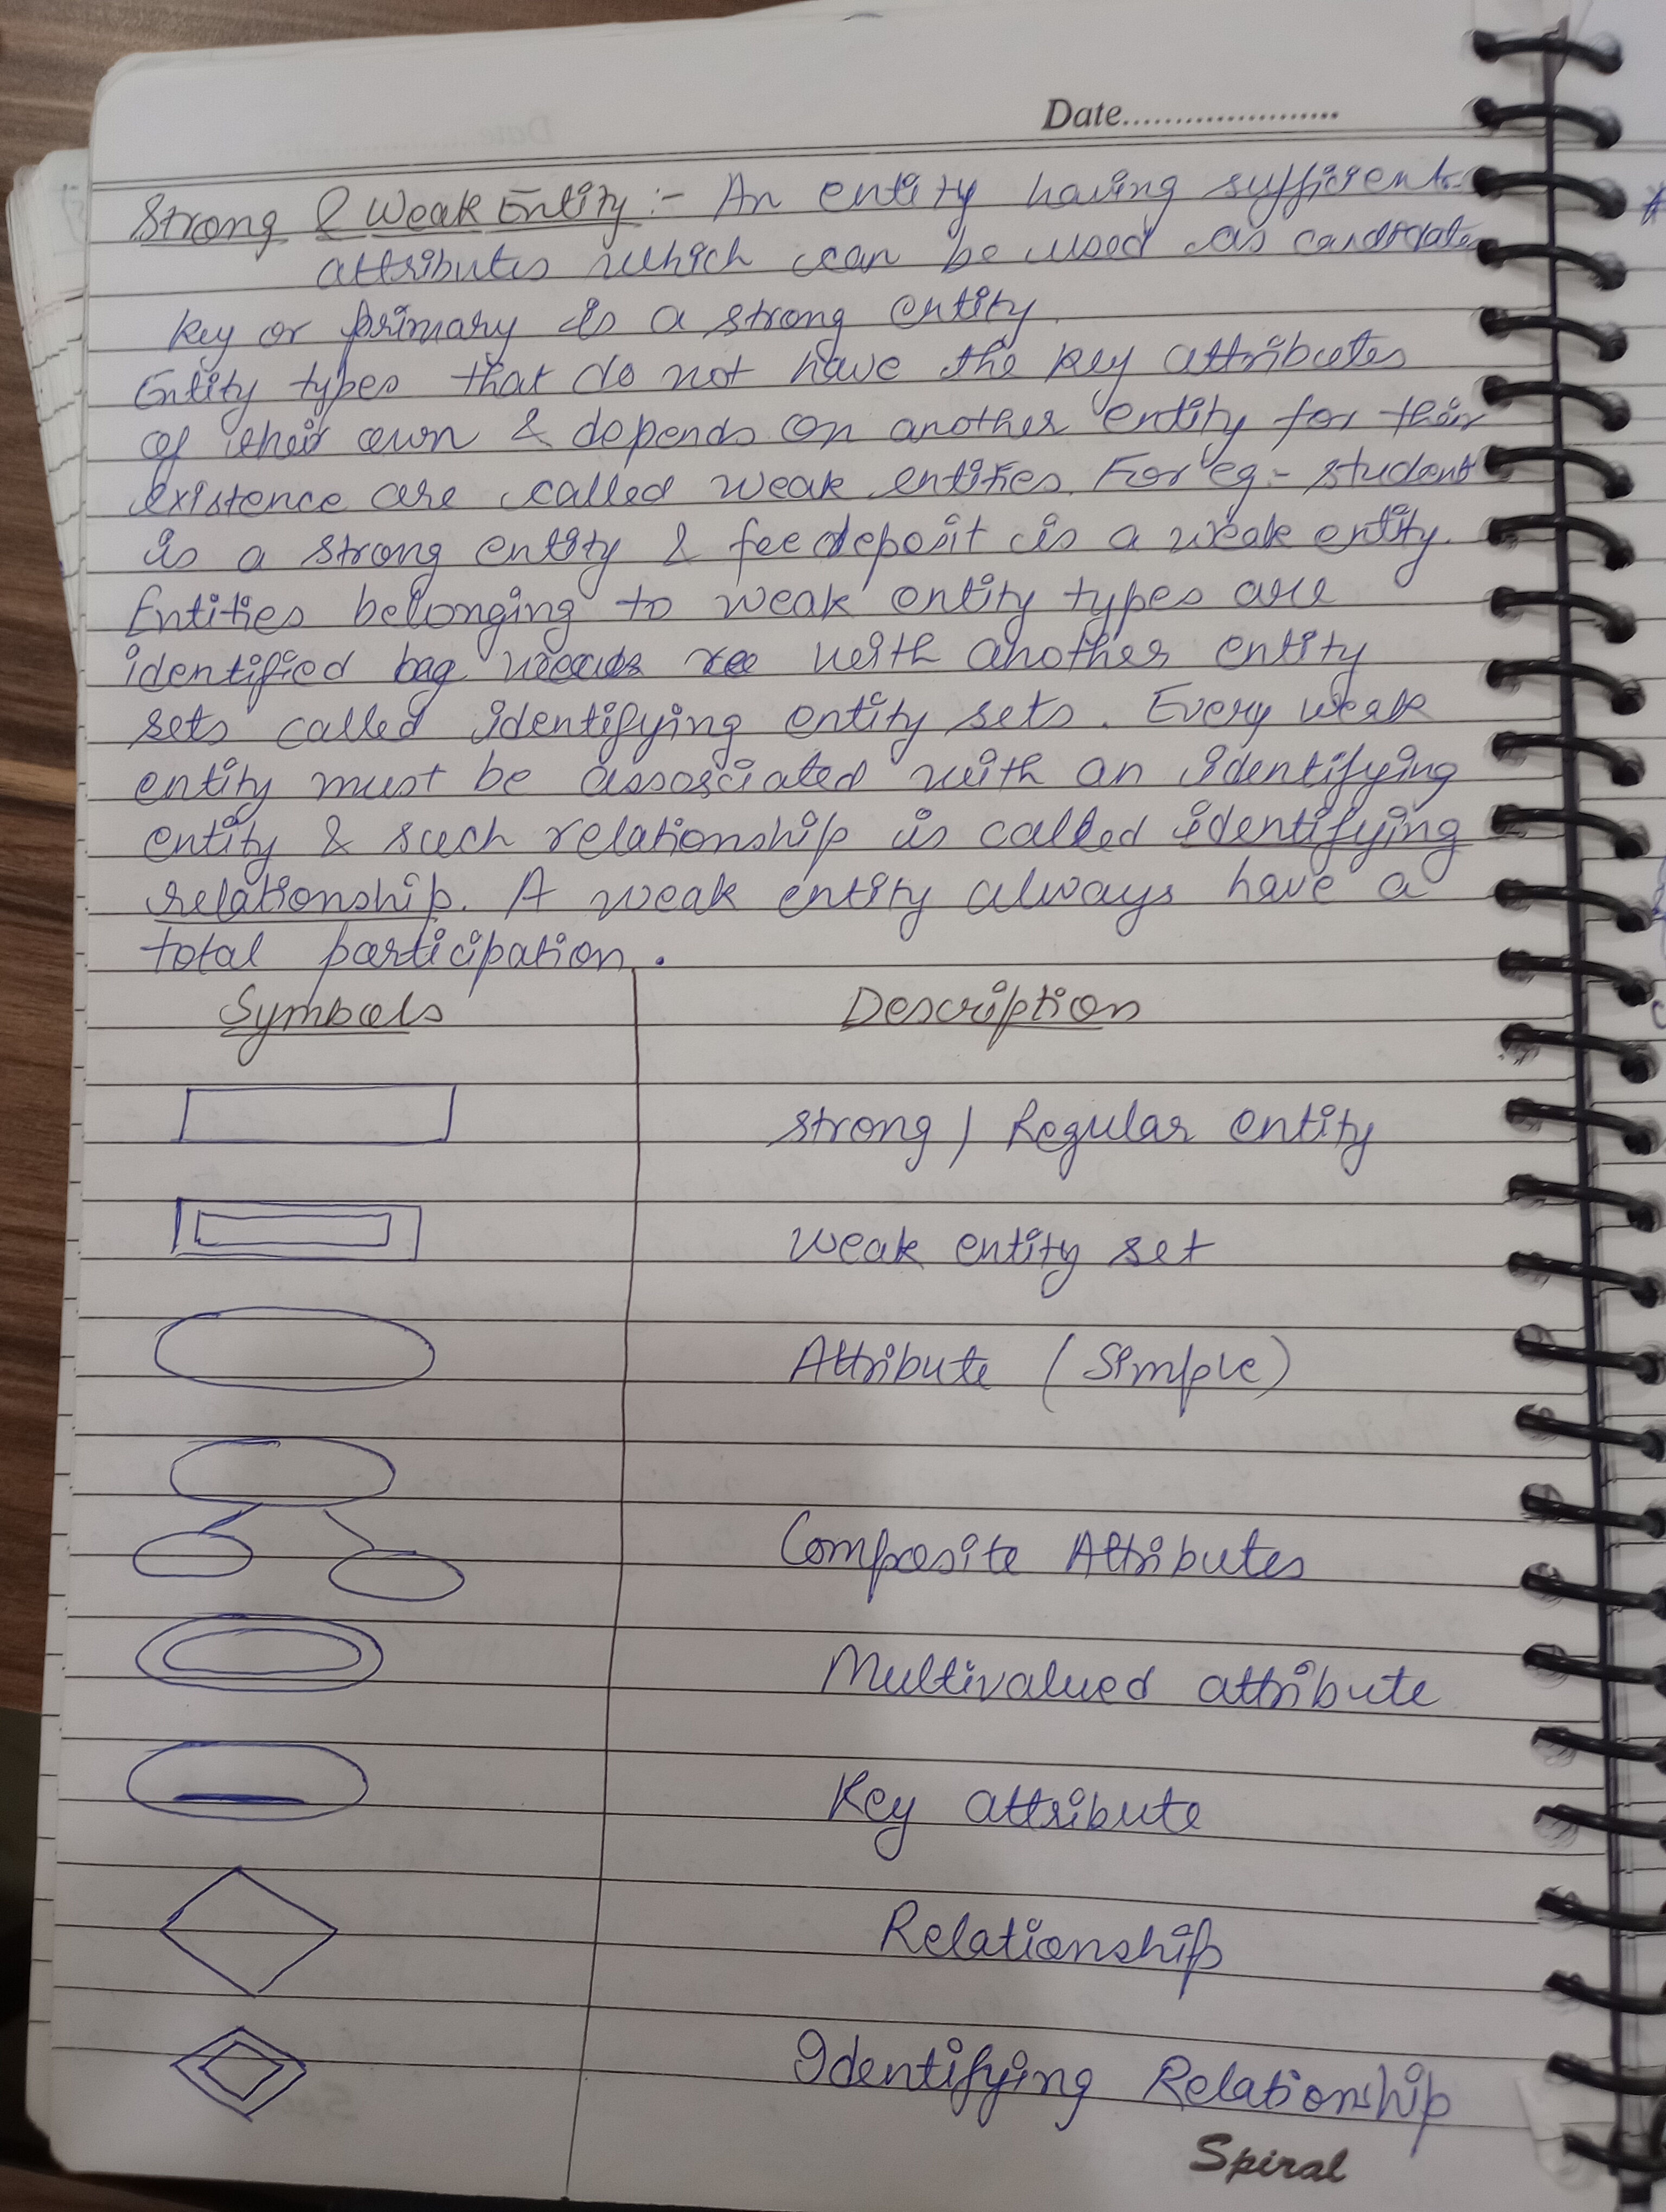 Date.....................
Strong & Weak Entity :- An entity having sufficient
attributes which can be used as candidate
key or primary is a strong entity.
Entity types that do not have the key attributes
of their own & depends on another entity for their
existence are called weak entities. For eg - student
is a strong entity & fee deposit is a weak entity.
Entities belonging to weak entity types are
identified with another entity
sets called identifying entity sets. Every weak
entity must be assosciated with an identifying
entity & such relationship is called identifying
relationship. A weak entity always have a
total participation.
Symbols Description
strong / Regular entity
weak entity set
Attribute (Simple)
Composite Attributes
Multivalued attribute
Key attribute
Relationship
Identifying Relationship
Spiral